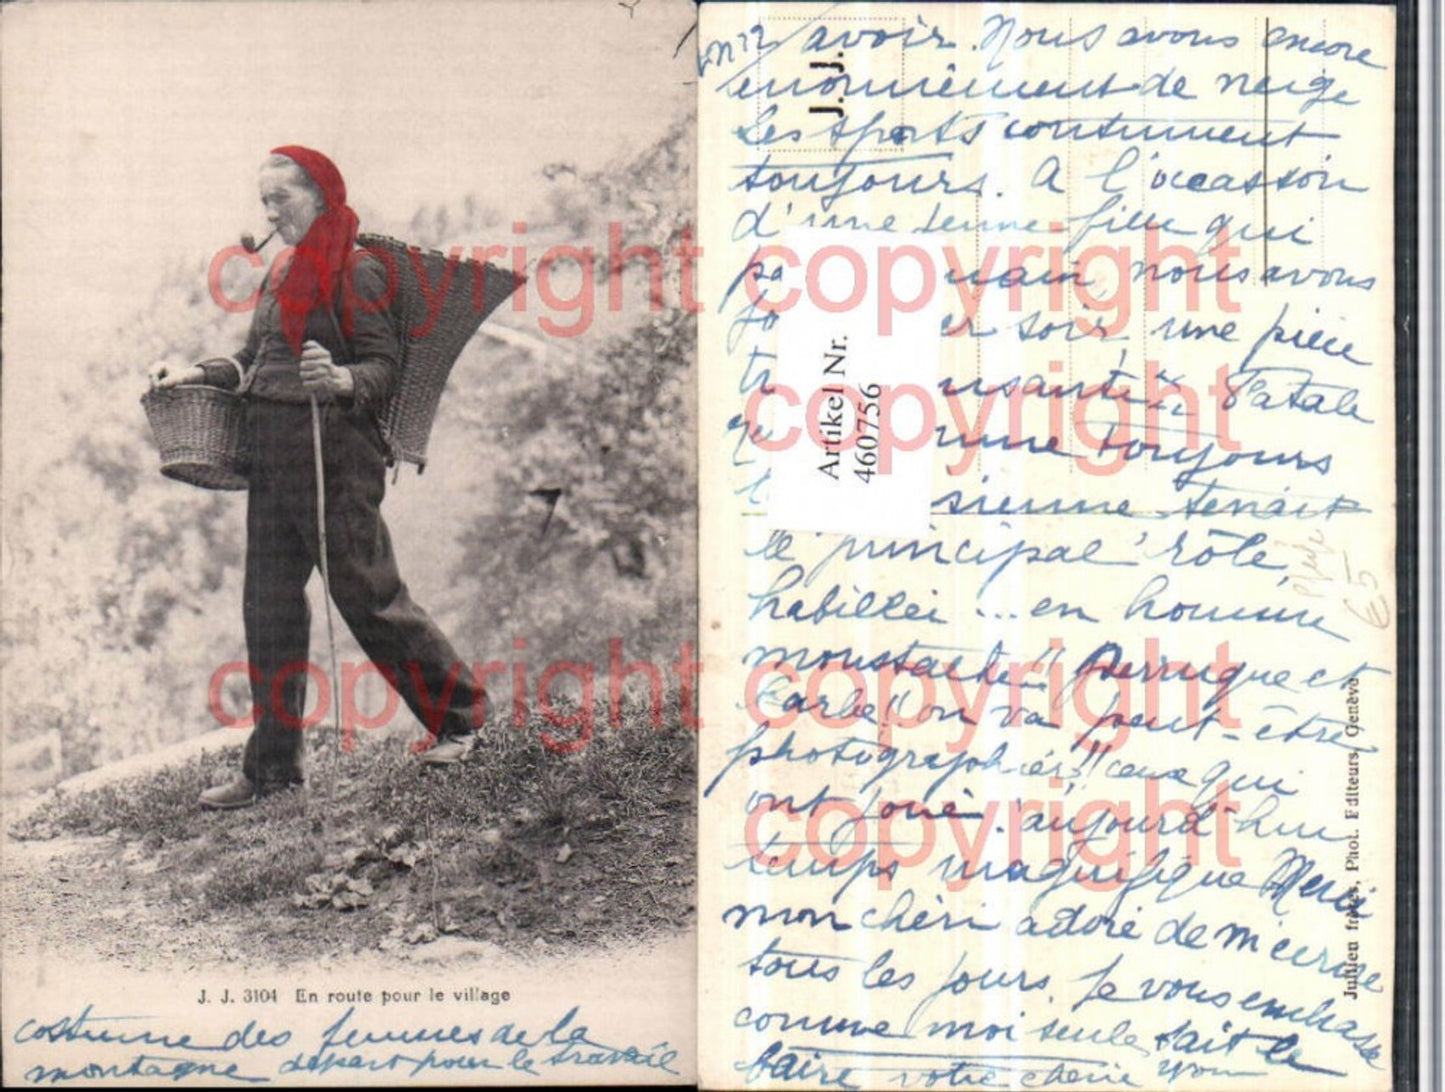 J. J. 3104 En route pour le village
costume des femmes de la
montagne départ pour le travail
avoir. Nous avons encore
enormément de neige
Les sports continuent
toujours. A l'occasion
d'une jeune fille qui
nous avons
soir, une pièce
toujours
tenait
le principal rôle,
habillée ... en homme
moustache!! perruque et
barbe! on va peut-être
photographier!! ceux qui
ont joué. aujourd'hui
temps magnifique Merci
mon chéri adoré de m'ecrire
tous les jours. Je vous embrasse
comme moi seule sait le
faire votre cherie
J. J.
Artikel Nr.
460756
Jullien frères, Phot. Editeurs, Genève
copyright copyright
copyright
copyright copyright
copyright